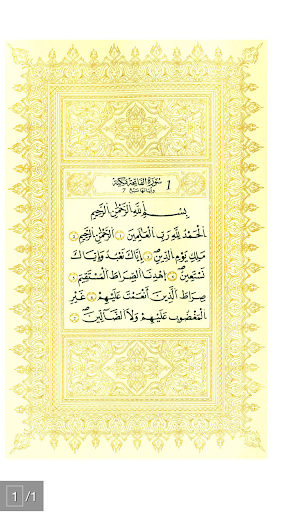 1 سُورَةُ الفَاتِحَةِ مَكِّيَّة
وآياتها سبع 7
بِسْمِ اللَّهِ الرَّحْمَٰنِ الرَّحِيمِ
الْحَمْدُ لِلَّهِ رَبِّ الْعَٰلَمِينَ ١ الرَّحْمَٰنِ الرَّحِيمِ ٢
مَلِكِ يَوْمِ الدِّينِ ٣ إِيَّاكَ نَعْبُدُ وَإِيَّاكَ
نَسْتَعِينُ ٤ اهْدِنَا الصِّرَٰطَ الْمُسْتَقِيمَ ٥
صِرَٰطَ الَّذِينَ أَنْعَمْتَ عَلَيْهِمْ ٦ غَيْرِ
الْمَغْضُوبِ عَلَيْهِمْ وَلَا الضَّآلِّينَ ٧
1/1